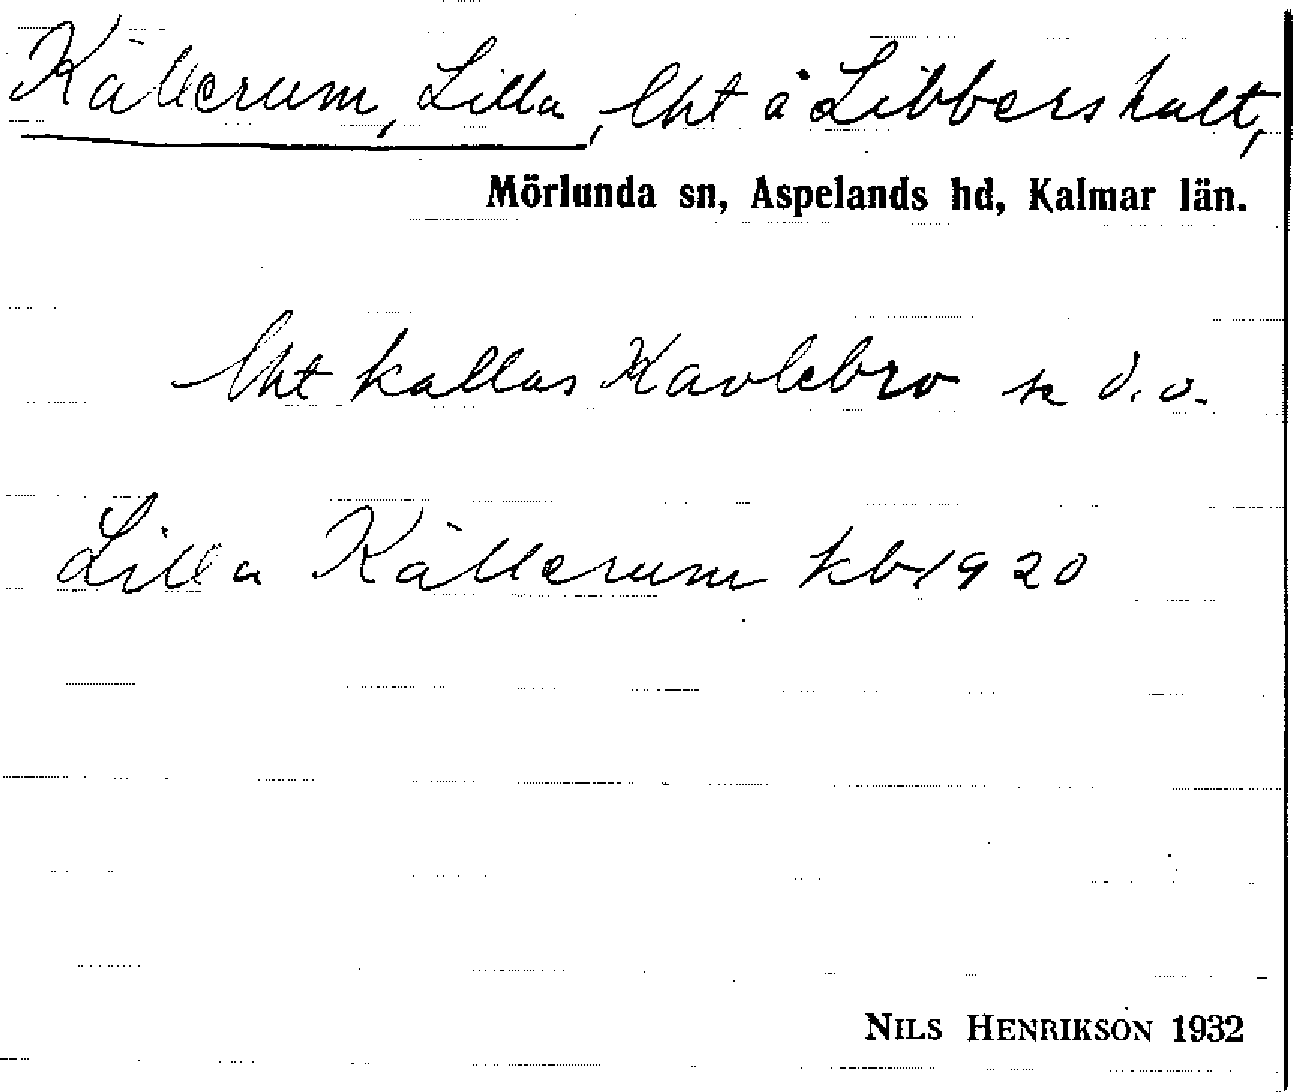 Källerum, Lilla, lht å Libbershult,
Mörlunda sn, Aspelands hd, Kalmar län.
lht kallas Kavlebro se d.o.
Lilla Källerum kb 1920
NILS HENRIKSON 1932